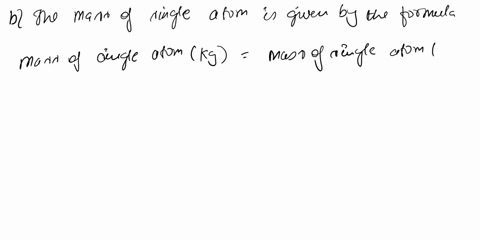 b) The mass of single atom is given by the formula
mass of single atom (kg) = mass of single atom (